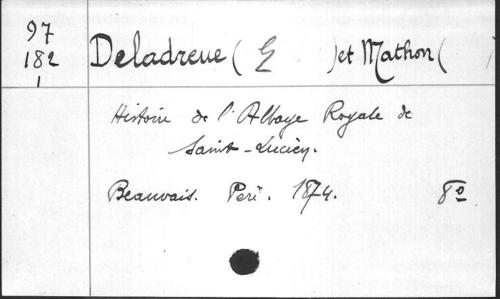 97
182
1
Deladreue (E )et Mathon (
Histoire de l'Abbaye Royale de
Saint-Lucien.
Beauvais. Peré. 1874. 8º